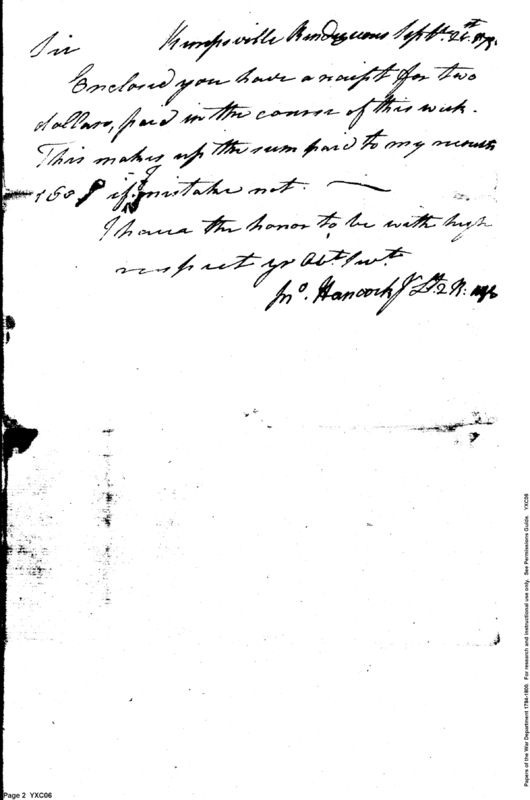 Sir Kempsville Rendezvous Septbr. 26th
Enclosed you have a receipt for two
dollars, paid in the course of this week.
This makes up the sum paid to my recruits
168 $ if I mistake not.
I have the honor to be with high
respect yr Obt. Servt.
Jno. Hancock Lt. 2 R.
Page 2 YXC06
Papers of the War Department 1784-1800. For research and instructional use only. See Permissions Guide. YXC06